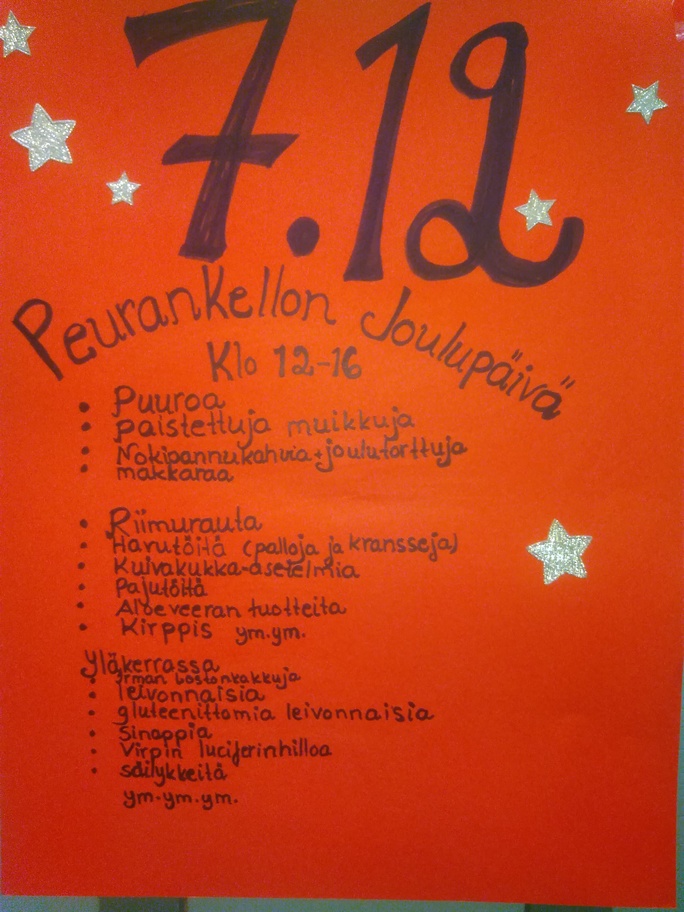 7.12
Peurankellon Joulupäivä
Klo 12-16
• Puuroa
• paistettuja muikkuja
• Nokipannukahvia+joulutorttuja
• makkaraa
• Riimurauta
• Havutöitä (palloja ja kransseja)
• Kuivakukka-asetelmia
• Pajutöitä
• Aloeveeran tuotteita
• Kirppis ym.ym.
Yläkerrassa
• Irman bostonkakkuja
• leivonnaisia
• gluteenittomia leivonnaisia
• Sinappia
• Virpin luciferinhilloa
• säilykkeitä
ym.ym.ym.